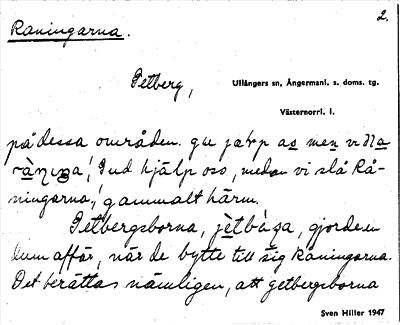 2.
Råningarna.
Getberg,
Ullångers sn, Ångermanl. s. doms. tg.
Västernorrl. l.
på dessa områden. gu jæɩp as men vi
'Gud hjälp oss, medan vi slå Rå-
ningarna,' gammalt härm.
Getbergsborna, gjorde en
dum affär, när de bytte till sig Råningarna.
Det berättas nämligen, att getbergsborna
Sven Hiller 1947